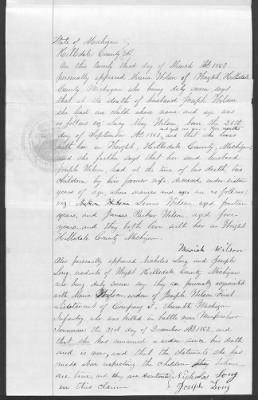 State of Michigan
Hillsdale County SS
On this twenty third day of March AD 1863
personally appeared Maria Wilson of Wright Hillsdale
County Michigan who being duly sworn says
that at the death of husband Joseph Wilson
she had one child whose name and age was
as follows viz Lucy May Wilson born the
day of September AD 1862, and that she lives
with her in Wright, Hillsdale County, Michigan
and she further says that her said husband
Joseph Wilson, had at the time of his death two
children by a former wife, under sixteen
years of age, whose names and ages are as follows:
viz Wilson, aged
years, and James Wilson, aged five
years, and they both live with her in Wright
Hillsdale County Michigan.
Mariah Wilson
Also personally appeared Nicholas Long and Joseph
Long, residents of Wright Hillsdale County Michigan
who being duly sworn say they are personally acquainted
with Maria Wilson, widow of Joseph Wilson First
Lieutenant of Company Michigan
Infantry who was killed in battle near Murfreesboro
Tennessee the 31st day of December AD 1862, and
that she has remained a widow since his death
and is now, and that the statements she has
made above respecting the children
are true and they are in
this claim
Nicholas Long
Joseph Long